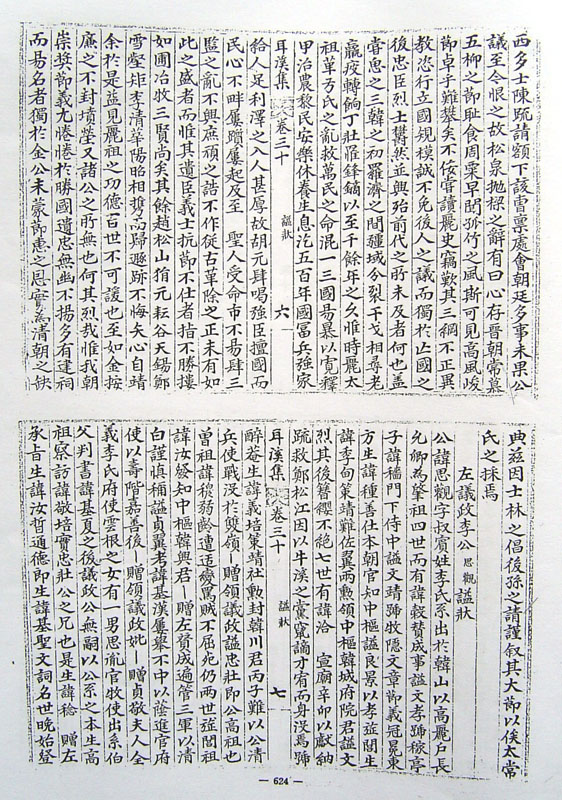 西多士陳疏請額下該曺禀處會朝廷多事未果公
議至今恨之故松泉拋梁之辭有曰心存晉朝常慕
五柳之節恥食周粟早聞孤竹之風斯可見高風峻
節卓乎難攀矣不佞嘗讀麗史竊歎其三綱不正異
敎恣行立國規模誠不免後人之議而獨於亡國之
後忠臣烈士欝然並興殆前代之所未及者何也盖
嘗思之三韓之初羅濟之間疆域分裂干戈相尋老
羸疲轉餉丁壯罹鋒鏑以至千餘年之久惟時麗太
祖革弓氏之亂救萬民之命混一三國易暴以寬釋
甲治農黎民安樂休養生息迄五百年國富兵強家
耳溪集 卷三十 諡狀 六
給人足利澤之入人甚厚故胡元肆喝強臣擅國而
民心不畔屢躓屢起及至 聖人受命市不易肆三
監之亂不興庶頑之誥不作從古革除之正未有如
此之盛者而惟其遺臣義士抗節不仕者指不勝摟
如圃冶牧三賢尚矣其餘趙松山狷元耘谷天錫鄭
雪壑矩李淸華陽昭相携高歸遯跡不悔矢心自靖
余於是益見麗祖之功德百世不可諼也至如金按
廉之不封墳塋又諸公之所無也何其烈哉惟我朝
崇奬節義尤惓惓於勝國遺忠無幽不揚多有建祠
而易名者獨於金公未蒙節惠之恩實爲淸朝之缺
典玆因士林之倡後孫之請謹叙其大節以俟太常
氏之採焉
左議政李公思觀諡狀
公諱思觀字叔賓姓李氏系出於韓山以高麗戶長
允卿爲肇祖四世而有諱穀贊成事諡文孝號稼亭
子諱穡門下侍中諡文靖號牧隱文章節義冠冕東
方生諱種善仕本朝官知中樞諡良景以孝旌閭生
諱季甸策靖難佐翼兩勳領中樞韓城府院君諡文
烈其後簪纓不絶七世有諱洽 宣廟辛卯以獻納
疏救鄭松江因以牛溪之黨竄謫才宥而身沒焉號
耳溪集 卷三十 諡狀 七
醉菴生諱義培策靖社勳封韓川君丙子難以公淸
兵使戰沒於雙嶺贈領議政諡忠壯卽公高祖也
曾祖諱穆弱齡遭遇癘罵賊不屈死仍兩世旌閭祖
諱汝發知中樞韓興君贈左贊成遍管三軍以淸
白謹愼稱諡貞翼考諱基漢屢擧不中以蔭進官府
使以壽階嘉善後贈領議政妣贈貞敬夫人全
義李氏府使雲根之女有一男思胤官牧使出系伯
父判書諱基夏之後議政公無嗣以公系之本生高
祖察訪諱敬培實忠壯公之兄也是生諱稔 贈左
承旨生諱汝哲通德卽生諱基聖文詞名世晩始登
— 624 —